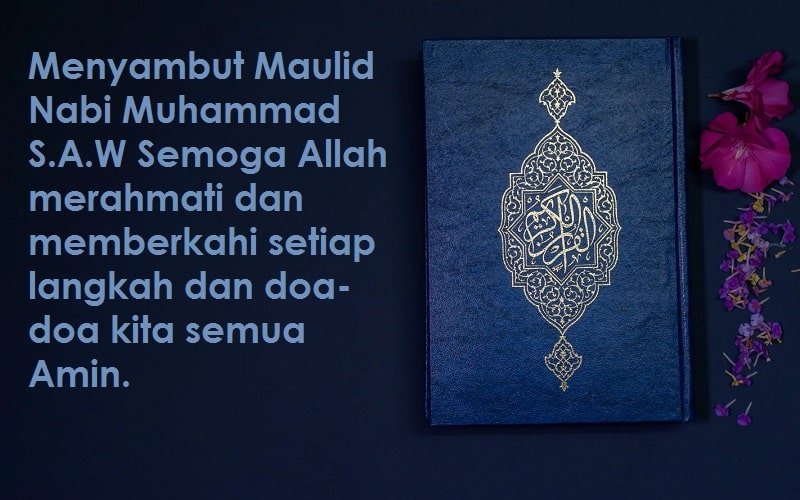 Menyambut Maulid
Nabi Muhammad
S.A.W Semoga Allah
merahmati dan
memberkahi setiap
langkah dan doa-
doa kita semua
Amin.
القرآن الكريم